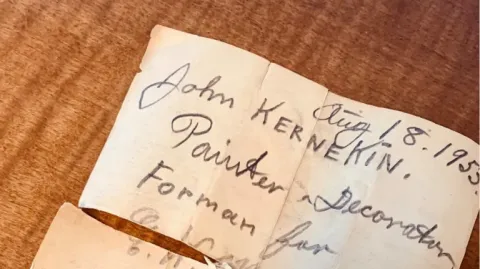 Aug 18. 1955.
John KERNEKIN.
Painter - Decorator
Forman for